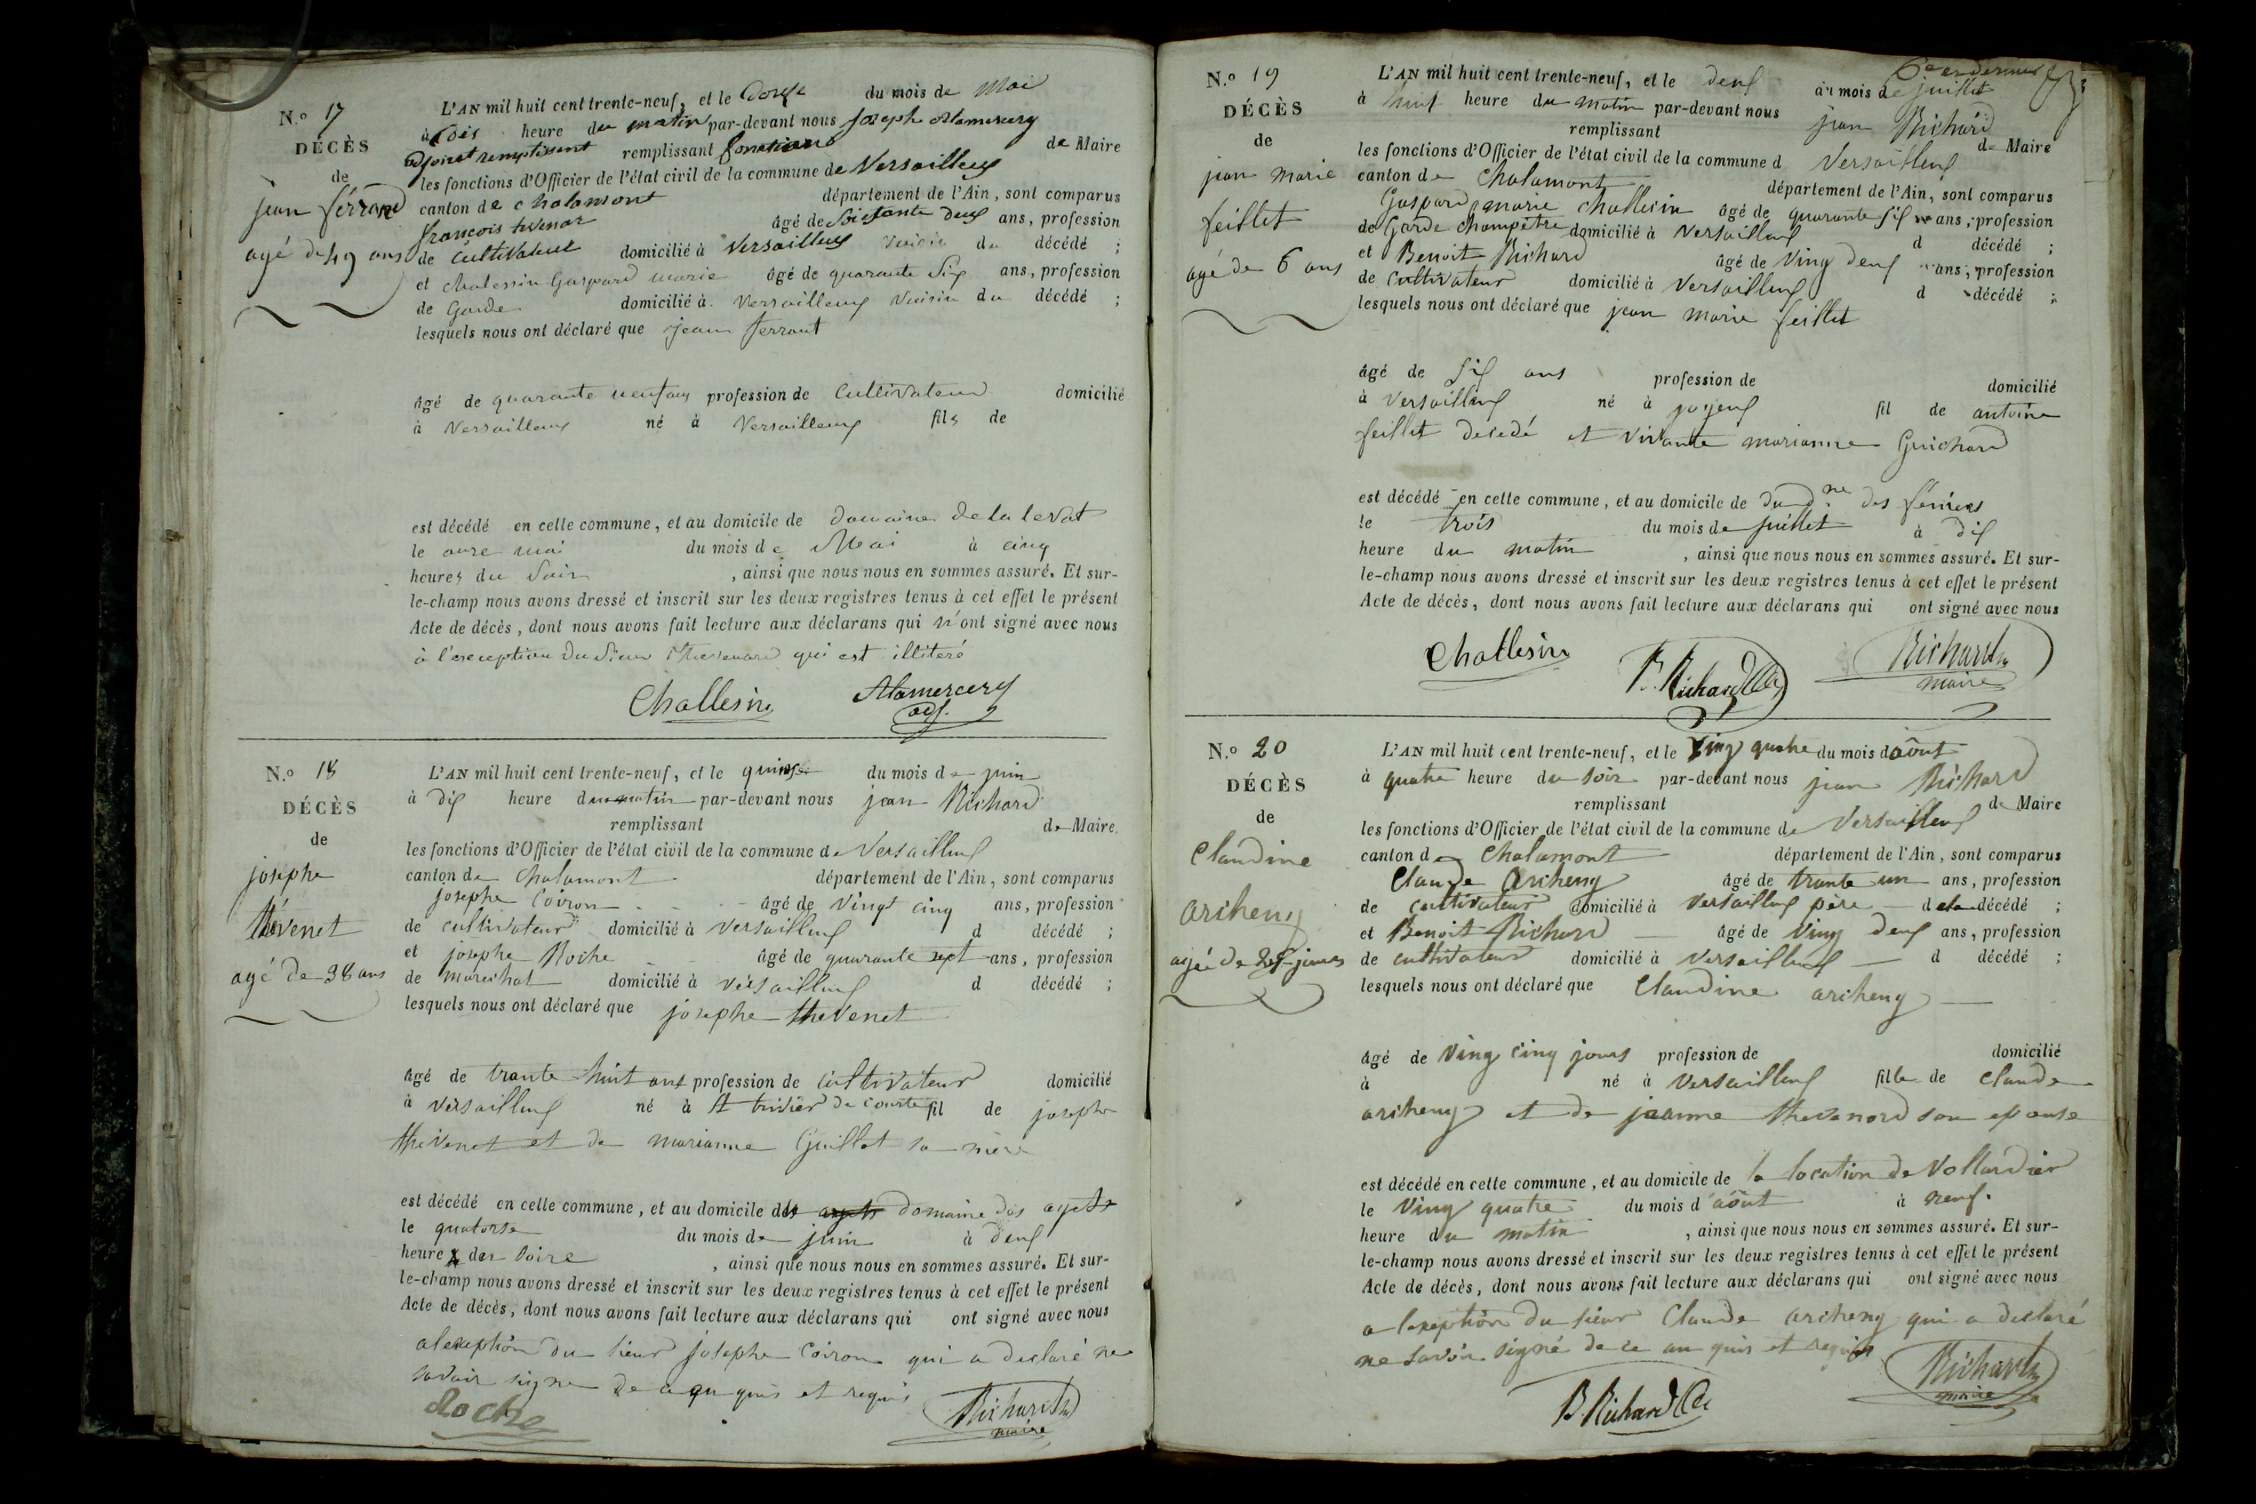 N.o 17
DÉCÈS
de
jean ferrand
agé de 49 ans
L'AN mil huit cent trente-neuf, et le douze du mois de Mai
à dix heure du matin par-devant nous Joseph Alamercery
adjoint remplissant remplissant fonctions de Maire
les fonctions d'Officier de l'état civil de la commune de Versailleux
canton de chalamont département de l'Ain, sont comparus
francois tevenar âgé de Soixante deux ans, profession
de cultivateur domicilié à Versailleux voisin du décédé ;
et chalessin Gaspard marie âgé de quarante Six ans, profession
de Garde domicilié à Versailleux Voisin du décédé ;
lesquels nous ont déclaré que jean ferrant
âgé de quarante neuf ans profession de Cultivateur domicilié
à Versailleux né à Versailleux fils de
est décédé en cette commune, et au domicile de domaine de la levat
le onze mai du mois de Mai à cinq
heures du Soir , ainsi que nous nous en sommes assuré. Et sur-
le-champ nous avons dressé et inscrit sur les deux registres tenus à cet effet le présent
Acte de décès, dont nous avons fait lecture aux déclarans qui n'ont signé avec nous
à l'exception du Sieur thevenard qui est illiteré
Challesin Alamercery
adj.
N.o 18
DÉCÈS
de
josephe
thévenet
agé de 38 ans
L'AN mil huit cent trente-neuf, et le quinze du mois de juin
à dix heure du matin par-devant nous jean Richard
remplissant de Maire
les fonctions d'Officier de l'état civil de la commune de Versailleux
canton de chalamont département de l'Ain, sont comparus
josephe Coiron âgé de Vingt cinq ans, profession
de cultivateur domicilié à Versailleux d décédé ;
et josephe Roche âgé de quarante sept ans, profession
de marechal domicilié à Versailleux d décédé ;
lesquels nous ont déclaré que josephe thevenet
âgé de trante huit ans profession de cultivateur domicilié
à Versailleux né à St trivier de courte fil de josephe
thevenet et de marianne Guillot sa mère
est décédé en cette commune, et au domicile des ayets domaine des ayets
le quatorse du mois de juin à deux
heure du soire , ainsi que nous nous en sommes assuré. Et sur-
le-champ nous avons dressé et inscrit sur les deux registres tenus à cet effet le présent
Acte de décès, dont nous avons fait lecture aux déclarans qui ont signé avec nous
a lexeption du sieur josephe Coiron qui a declaré ne
savoir signe de ce quis et requis
Roche Richard
maire
N.o 19
DÉCÈS
de
jean marie
feillet
agé de 6 ans
L'AN mil huit cent trente-neuf, et le deux du mois de juillet
à huit heure du matin par-devant nous jean Richard
remplissant de Maire
les fonctions d'Officier de l'état civil de la commune d Versailleux
canton de chalamont département de l'Ain, sont comparus
Gaspard marie challesin âgé de quarante six ans, profession
de Garde champêtre domicilié à Versailleux d décédé ;
et Benoit Richard âgé de Ving deux ans, profession
de Cultivateur domicilié à Versailleux d décédé ;
lesquels nous ont déclaré que jean marie feillet
âgé de six ans profession de domicilié
à Versailleux né à joyeux fil de antoine
feillet decedé et vivante marianne Guichard
est décédé en cette commune, et au domicile de du dne des
le trois du mois de juillet à dix
heure du matin , ainsi que nous nous en sommes assuré. Et sur-
le-champ nous avons dressé et inscrit sur les deux registres tenus à cet effet le présent
Acte de décès, dont nous avons fait lecture aux déclarans qui ont signé avec nous
Challesin B. Richard Richard
maire
N.o 20
DÉCÈS
de
Claudine
archeny
agée de 25 jours
L'AN mil huit cent trente-neuf, et le Ving quatre du mois d août
à quatre heure du soir par-devant nous jean Richard
remplissant de Maire
les fonctions d'Officier de l'état civil de la commune de Versailleux
canton de Chalamont département de l'Ain, sont comparus
Claude archeny âgé de trante un ans, profession
de cultivateur domicilié à Versailleux père de la décédé ;
et Benoit Richard âgé de Ving deux ans, profession
de cultivateur domicilié à Versailleux d décédé ;
lesquels nous ont déclaré que Claudine archeny
âgé de Ving cinq jours profession de domicilié
à né à Versailleux fille de Claude
archeny et de jeanne thevenard son epouse
est décédé en cette commune, et au domicile de la location de Vollardier
le Ving quatre du mois d août à neuf.
heure du matin , ainsi que nous nous en sommes assuré. Et sur-
le-champ nous avons dressé et inscrit sur les deux registres tenus à cet effet le présent
Acte de décès, dont nous avons fait lecture aux déclarans qui ont signé avec nous
a lexeption du sieur Claude archeny qui a declaré
ne savoir signé de ce quis et requis
B. Richard Richard
maire